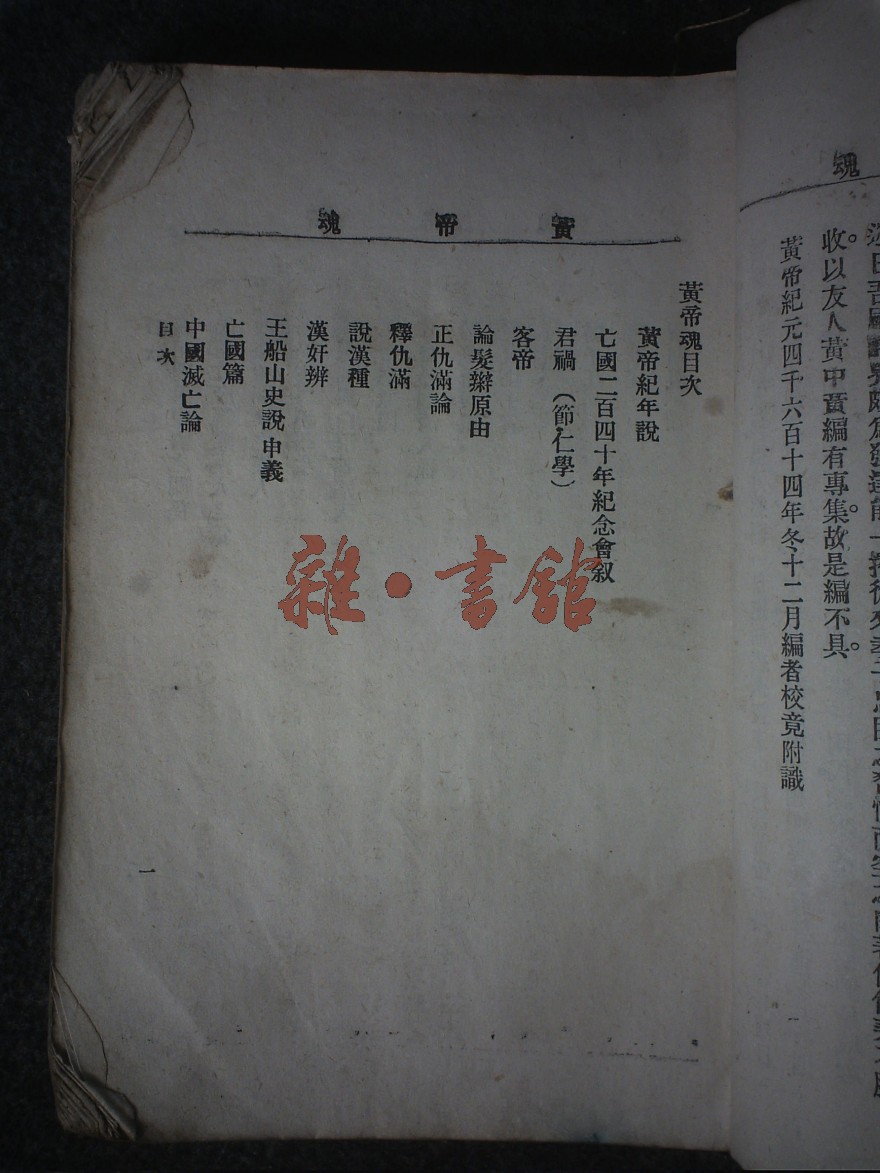 魂
收以友人黃中黃編有專集。故是編不具。
黃帝紀元四千六百十四年冬十二月編者校竟附識
一
黃帝魂
黃帝魂目次
黃帝紀年說
亡國二百四十年紀念會叙
君禍（節仁學）
客帝
論髮辮原由
正仇滿論
釋仇滿
說漢種
漢奸辨
王船山史說申義
亡國篇
中國滅亡論
目次
一
雜·書館